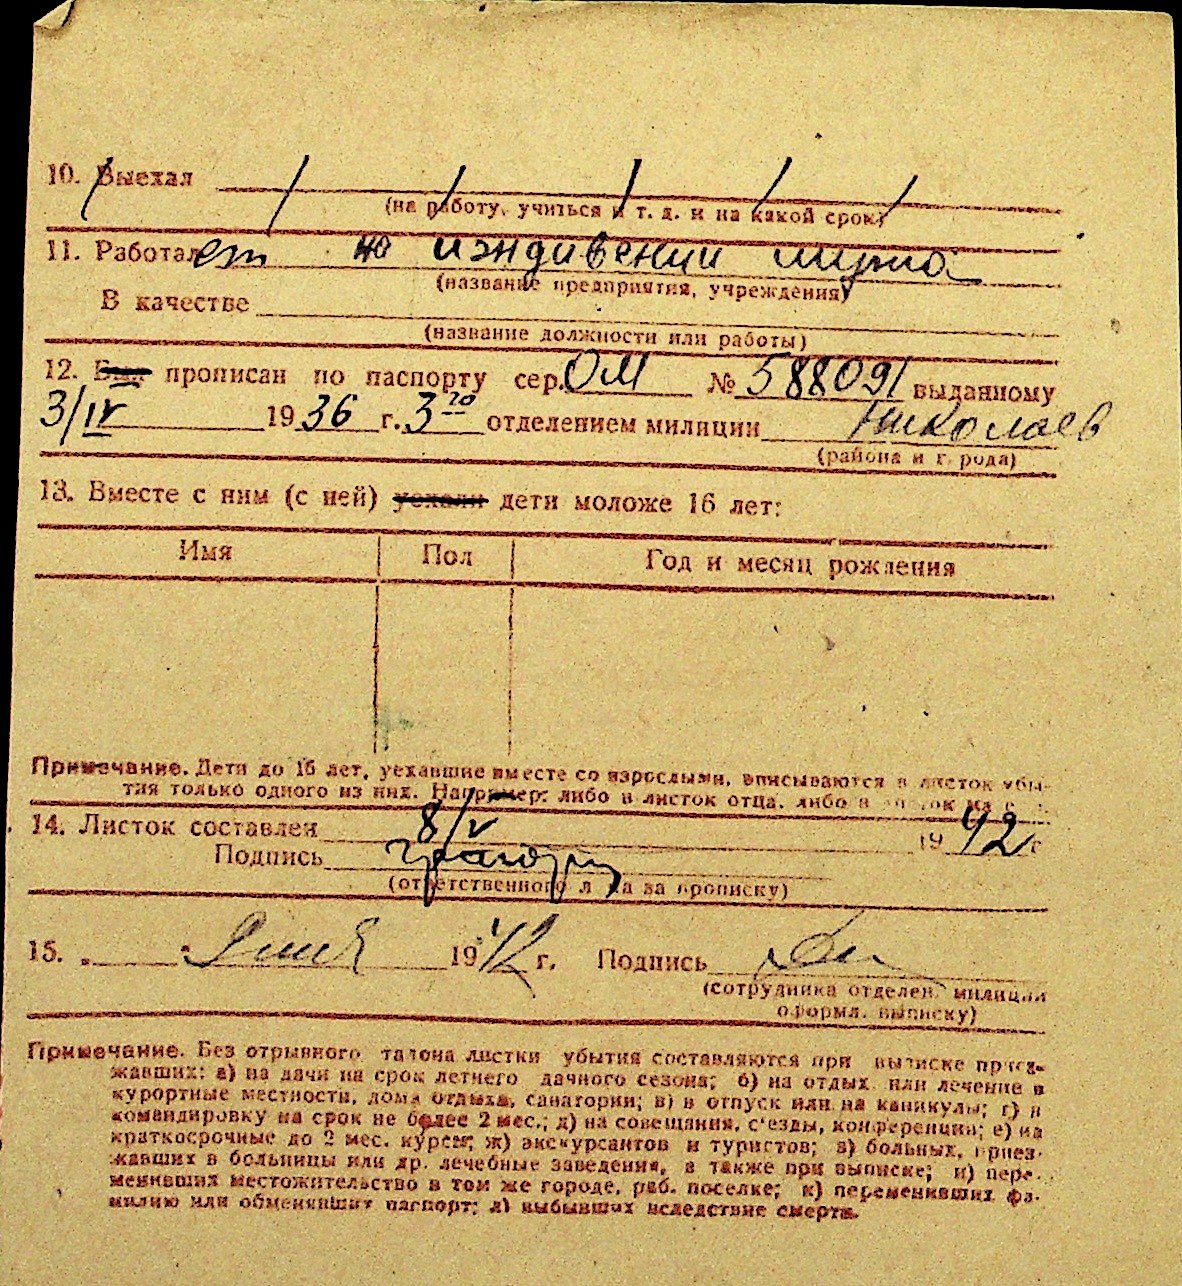 10. Выехал
(на работу, учиться и т. д. и на какой срок)
11. Работает на иждивении мужа
(название предприятия, учреждения)
В качестве
(название должности или работы)
12. Был прописан по паспорту сер. ОМ № 588091 выданному
3/IV 1936 г. 3 отделением милиции Николаев
(района и города)
13. Вместе с ним (с ней) уехали дети моложе 16 лет:
Имя Пол Год и месяц рождения
Примечание. Дети до 16 лет, уехавшие вместе со взрослыми, вписываются в листок убы-
тия только одного из них. Например: либо в листок отца, либо в листок
14. Листок составлен 8/V 1942 г
Подпись
(ответственного лица за прописку)
15. „ “ 1942 г. Подпись
(сотрудника отделен. милиции
оформл. выписку)
Примечание. Без отрывного талона листки убытия составляются при выписке приез-
жавших: а) на дачи на срок летнего дачного сезона; б) на отдых или лечение в
курортные местности, дома отдыха, санатории; в) в отпуск или на каникулы; г) в
командировку на срок не более 2 мес.; д) на совещания, с'езды, конференции; е) на
краткосрочные до 2 мес. курсы; ж) экскурсантов и туристов; з) больных, приез-
жавших в больницы или др. лечебные заведения, а также при выписке; и) пере-
менивших местожительство в том же городе, раб. поселке; к) переменивших фа-
милию или обменявших паспорт; л) выбывших вследствие смерти.